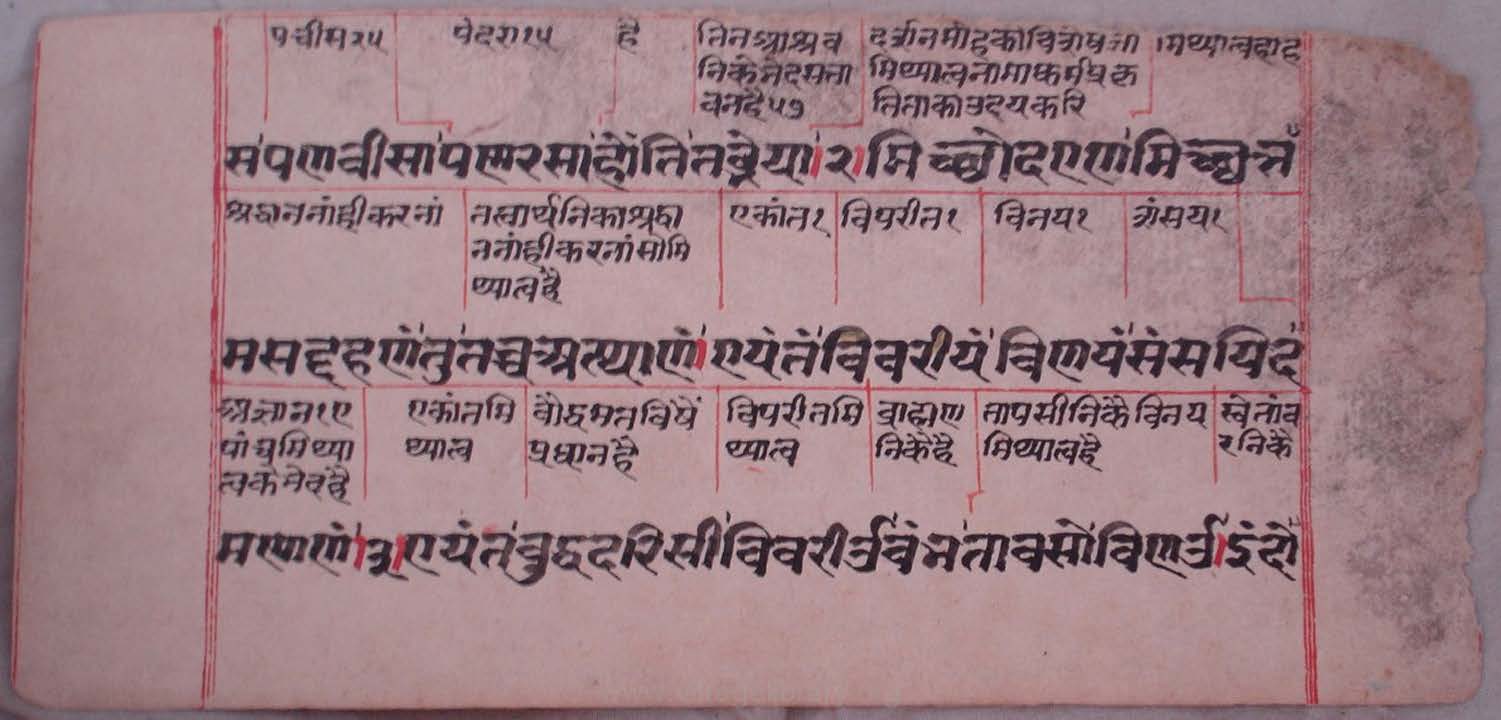 पचीस२५ पंदरा१५ है तिनआश्रव दर्शनमोहकी मिथ्यात्व
निकेभेदसत्ता मिथ्यात्वनामाकर्मप्रकृ
वनहै५७ तिताकाउदयकरि
संपणवीसापणरसाहोंतितब्भेया।२।मिच्छोदएणंमिच्छत्त
श्रद्धाननांहीकरनां तत्वार्थनिकाश्रद्धा एकांत१ विपरीत१ विनय१ शंसय१
ननांहीकरनांसोमि
थ्यात्वहै
मसद्दहणंतुतच्चअत्थाणं।एयंतंविवरीयंविणयंसंसयिद
अज्ञान१ए एकांतमि बौद्धमतविषें विपरीतमि ब्राह्मण तापसीनिकैविनय स्वेतांब
पांचमिथ्या थ्यात्व प्रधानहै थ्यात्व निकैहै मिथ्यात्वहै रनिकै
त्वकेभेदहै
मण्णाणं।३।एयंतबुद्धदरिसीविवरीउबंभतावसोविणउ।इंदो